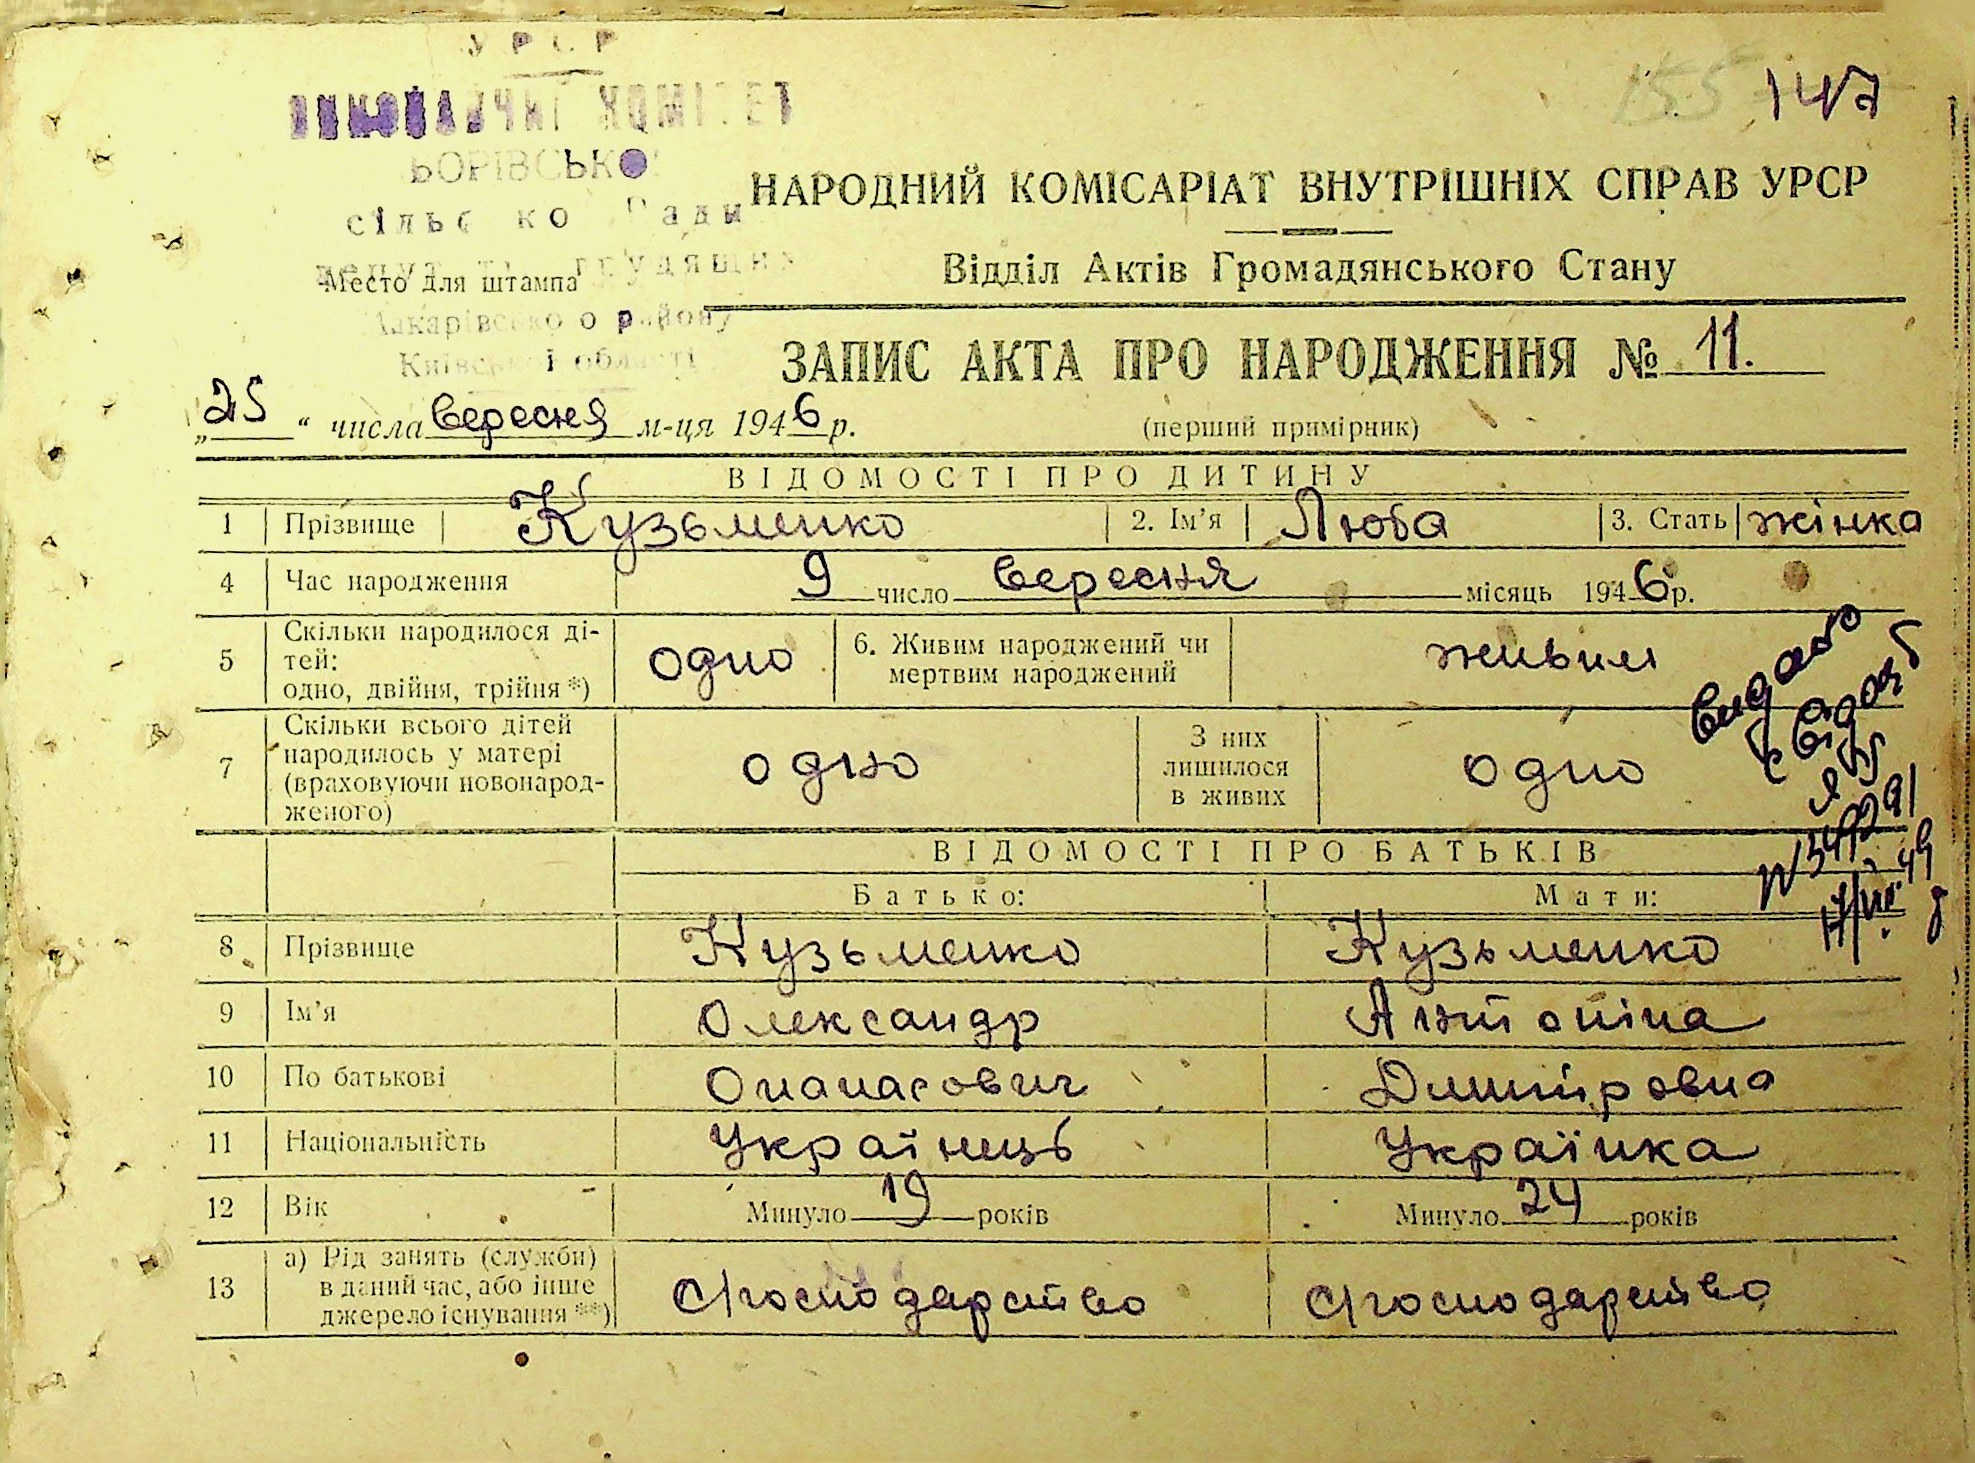 УРСР
ВИКОНАВЧИЙ КОМІТЕТ
БОРІВСЬКОЇ
сільської Ради
депутатів трудящих
Макарівського району
Київської області
Место для штампа
155 147
НАРОДНИЙ КОМІСАРІАТ ВНУТРІШНІХ СПРАВ УРСР
Відділ Актів Громадянського Стану
ЗАПИС АКТА ПРО НАРОДЖЕННЯ № 11.
„25“ числа вересня м-ця 1946 р.
(перший примірник)
ВІДОМОСТІ ПРО ДИТИНУ
1 Прізвище Кузьменко 2. Ім'я Люба 3. Стать жінка
4 Час народження 9 число вересня місяць 1946 р.
5 Скільки народилося ді-
тей:
одно, двійня, трійня *) одно 6. Живим народжений чи
мертвим народжений живим
7 Скільки всього дітей
народилось у матері
(враховуючи новонарод-
женого) одно З них
лишилося
в живих одно
видано
свідоцт
ЯБ
ВІДОМОСТІ ПРО БАТЬКІВ
Батько: Мати:
8 Прізвище Кузьменко Кузьменко
9 Ім'я Олександр Антоніна
10 По батькові Опанасович Дмитровна
11 Національність Українець Українка
12 Вік Минуло 19 років Минуло 24 років
13 а) Рід занять (служби)
в даний час, або інше
джерело існування **) С/господарство С/господарство